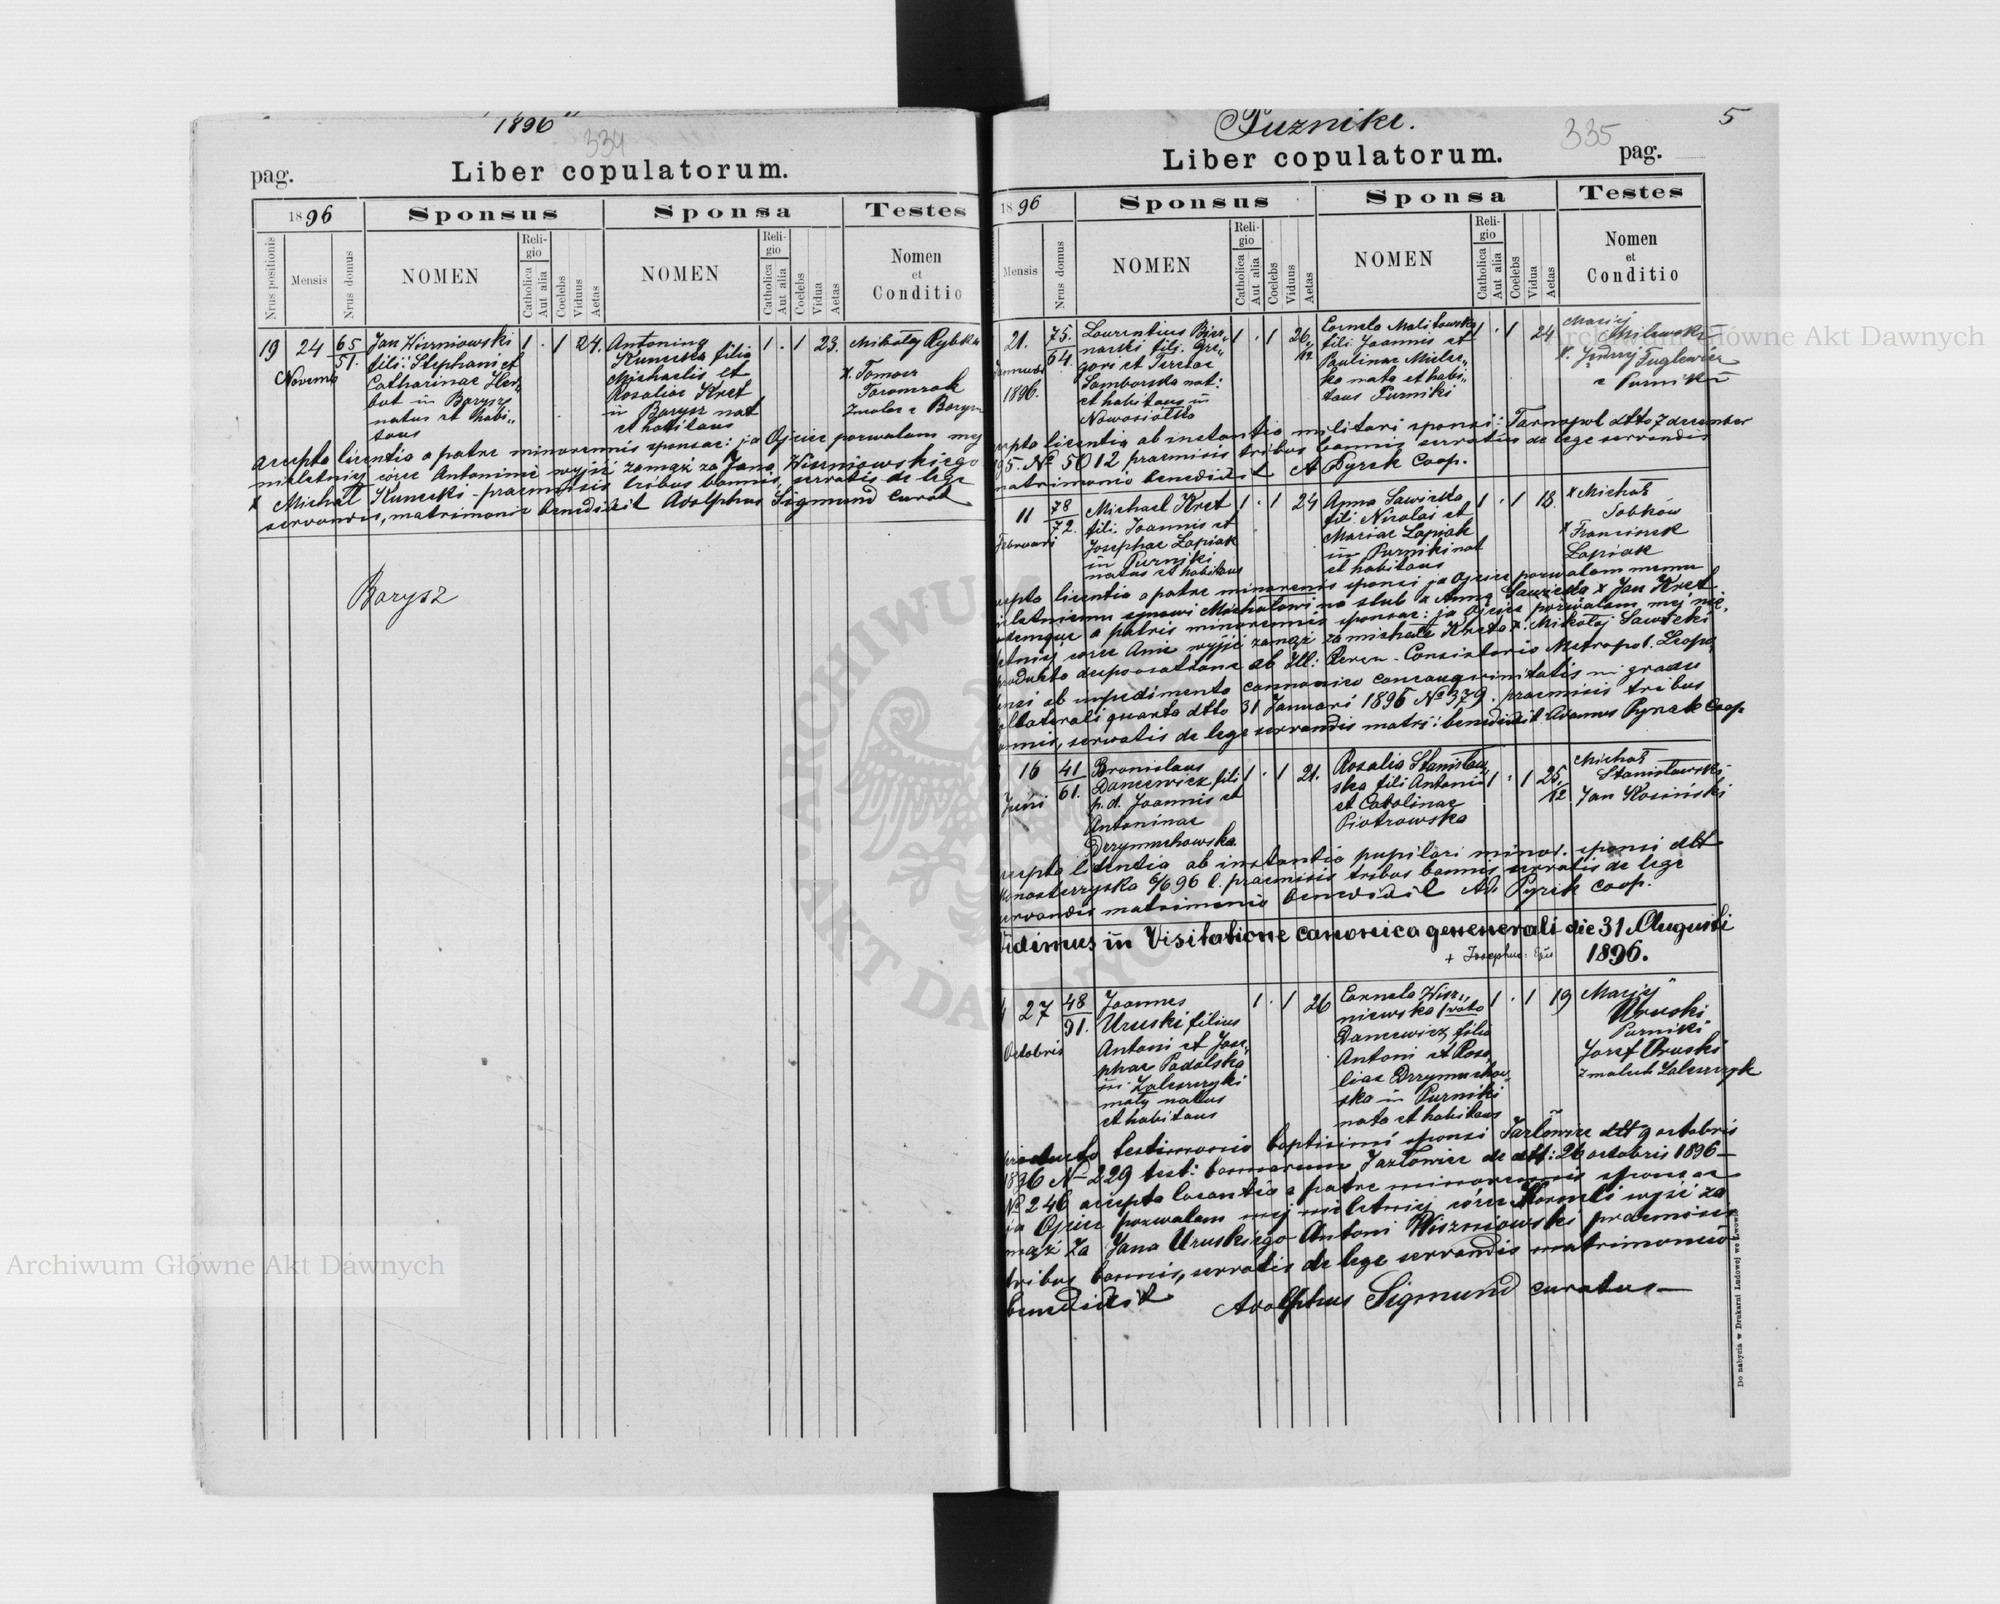 "1896"
334
pag.
Liber copulatorum.
1896
Sponsus
Sponsa
Testes
Nrus positionis
Mensis
Nrus domus
NOMEN
Religio
Catholica
Aut alia
Coelebs
Viduus
Aetas
NOMEN
Religio
Catholica
Aut alia
Coelebs
Vidua
Aetas
Nomen
et
Conditio
19 24 65 Jan Wiszniowski 1 . 1 24. Antonina 1 . 1 23. Mikołaj Rybka
51. fili: Stephani et Kunecka filia
Novemb Catharinae Michaelis et x. Tomasz
in Borysz Rosaliae Kret
natus et habi„ in Borysz nat z Borysz
tans et habitans
accepta licentia a patre minorennis sponsae: ja Ojciec pozwalam mej
nieletniej córce Antoninie wyjść zamąż za Jana Wiszniowskiego
x Michał Kunecki - praemissis tribus bannis, servatis de lege
servandis, matrimonio benedixit Adolphus Sigmund Curat
Borysz
Puzniki.
5
335
Liber copulatorum.
pag.
1896
Sponsus
Sponsa
Testes
Mensis
Nrus domus
NOMEN
Religio
Catholica
Aut alia
Coelebs
Viduus
Aetas
NOMEN
Religio
Catholica
Aut alia
Coelebs
Vidua
Aetas
Nomen
et
Conditio
21. 75. Laurentius Bier„ 1 . 1 26 Cornela Malitowska 1 . 1 24 Maciej
64. narski fili: Gre„ 12 fili Joannis et Milewski
gori et Teresae Paulinae x. Jędrzej
1896. Samborska nat: ka nata et habi„ z Puzniki
et habitans in tans Puzniki
Nowosiółka
licentia ab instantia militari sponsi: Tarnopol dtto 7 december
No 5012 praemissis tribus bannis servatis de lege servandis
matrimonio benedixit A Pyrek Coop.
11 78 Michael Kret 1 . 1 24 Anna Sawicka 1 . 1 18. x Michał
72. fili: Joannis et fili: Nicolai et Sobków
Februari Josephae Łapiak Mariae Łapiak x Franciszek
in Puzniki in Puzniki nat Łapiak
natus et habitans et habitans
licentia a patre minorenis sponsi ja Ojciec pozwalam memu
synowi Michałowi na ślub z Anną Sawicką x Jan Kret
a patris minorennis sponsae: ja Ojciec pozwalam mej nie„
córce Anni wyjść zamąż za michała Kreta x. Mikołaj Sawicki
ab Ill: Reven - Consistorio Metropol. Leopo„
ab impedimento cannonico consanquinitatis in gradu
quarto dtto 31 Januari 1896 No 379. praemissis tribus
servatis de lege servandis matri: benedixit Adamus Pyrek Coop
16 41 Bronislaus 1 . 1 21. Rosalia Stanisław„ 1 . 1 25, Michał
61. Dancewicz fili ska fili Antonii 12 Stanisławski
Juni p. d. Joannis et et Carolinae Jan Kosiński
Antoninae Piotrowska
Drzymuchowska.
licentia ab instantia pupilari minor. sponsi dtt
6/6 96 l. praemissis tribus bannis servatis de lege
servandis matrimonio benedixit Ad. Pyrek coop.
Vidimus in Visitatione canonica generali die 31 Augusti
+ Josephus: Eps 1896.
27 48 Joannes 1 . 1 26 Cornela Wisz„ 1 . 1 19 Maciej
91. Uruski filius niewska 1 voto Uruski
Octobris Antoni et Jose„ Dancewicz, filia Puzniki
phae Podolska Antoni et Rosa„ Jozef Uruski
in Zaleszczyki liae Drzymuchow„
mały natus ska in Puzniki
et habitans nata et habitans
producto testimonio baptismi sponsi Jazłowiec dtt 9 octobris
1896 No 229 test: bannorum Jazłowiec de dtt: 26 octobris 1896 –
No 246 accepta licentia a patre minorennis sponsae
ja Ojciec pozwalam mej nieletniej córce Korneli wyjść za
mąż za Jana Uruskiego Antoni Wiszniowski praemissis
tribus bannis, servatis de lege servandis matrimonio
benedixit Adolphus Sigmund curatus –
Do nabycia w Drukarni Ludowej we Lwowie
Archiwum Główne Akt Dawnych
Archiwum Główne Akt Dawnych
ARCHIWUM
AKT DAWNYCH